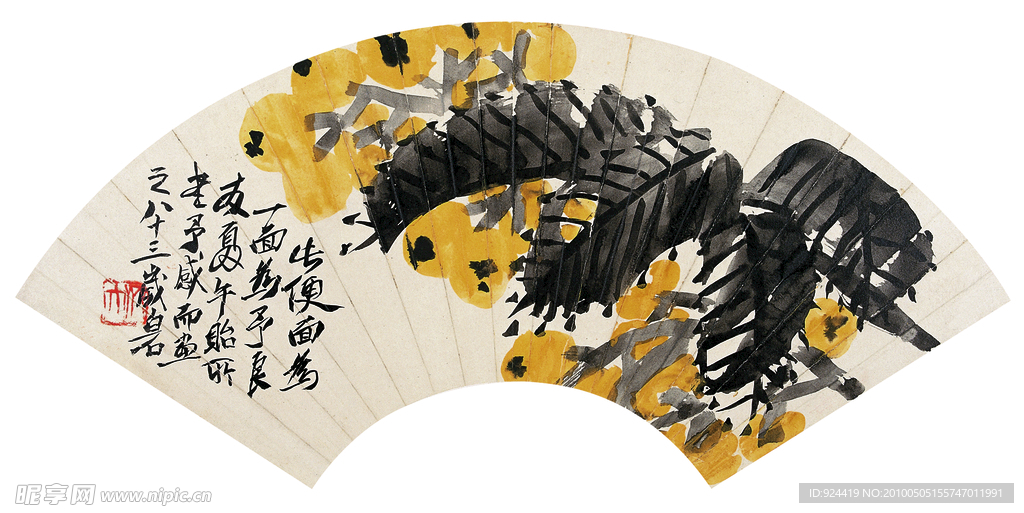 此便面為
一面為予良
友夏午貽所
書予感而畫
之八十三歲白石
昵享网 www.nipic.cn
ID:924419 NO:20100505155747011991